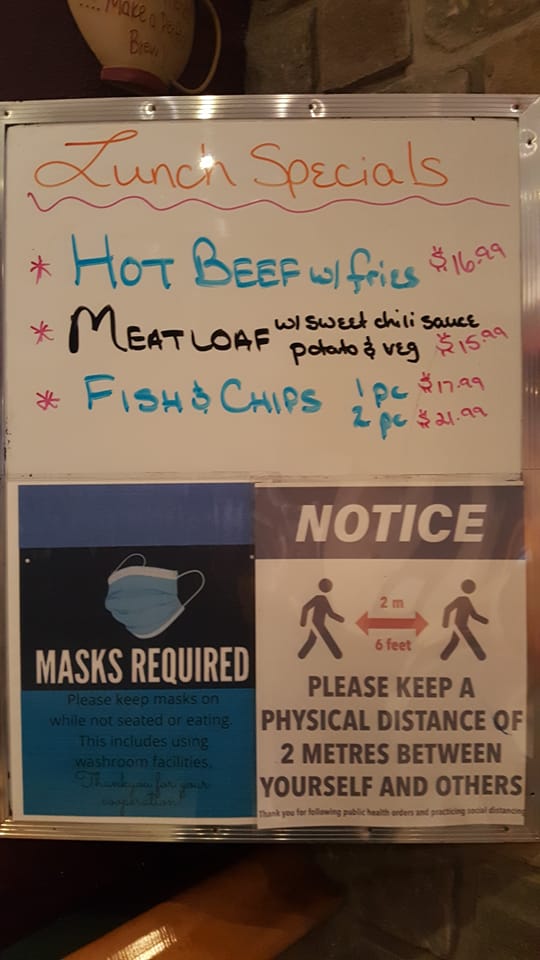 ....Make a Perfect
Brew
Lunch Specials
* HOT BEEF w/ fries $16.99
* MEATLOAF w/ sweet chili sauce
potato & veg $15.99
* FISH & CHIPS 1 pc $17.99
2 pc $21.99
MASKS REQUIRED
Please keep masks on
while not seated or eating.
This includes using
washroom facilities.
Thankyou for your
cooperation!
NOTICE
2 m
6 feet
PLEASE KEEP A
PHYSICAL DISTANCE OF
2 METRES BETWEEN
YOURSELF AND OTHERS
Thank you for following public health orders and practicing social distancing